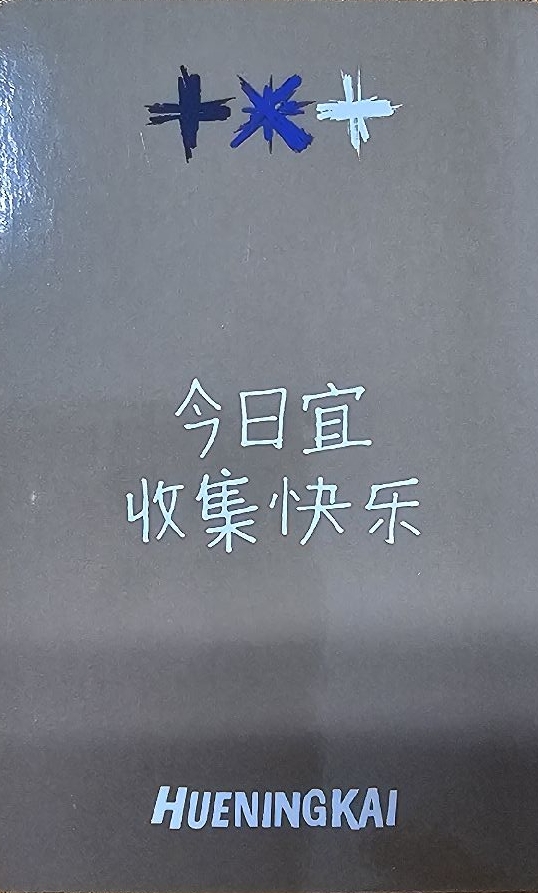 今日宜
收集快乐
HUENINGKAI